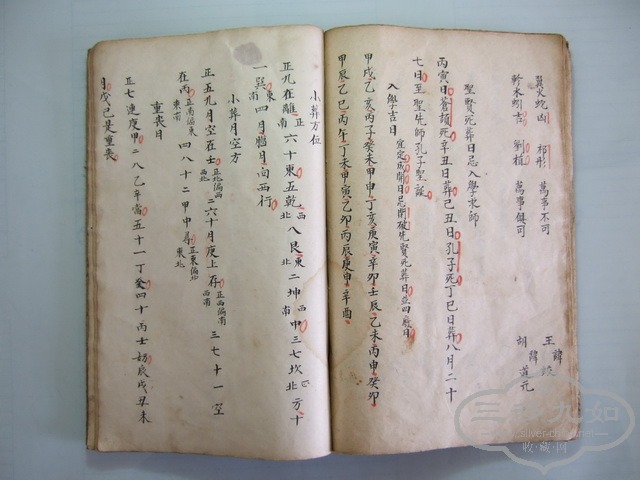 翼火蛇凶 祁彤 萬事不可
軫水蚓吉 劉植 萬事俱可
王
胡
聖賢死葬日忌入學求師
丙寅日蒼頡死辛丑日葬己丑日孔子死丁巳日葬八月二十
七日至聖先師孔子聖誕
入學吉日 宜定成開日忌閉破先賢死葬日並四廢日
甲戌乙亥丙子癸未甲申丁亥庚寅辛卯壬辰乙未丙申癸卯
甲辰乙巳丙午丁未甲寅乙卯丙辰庚申辛酉
小葬方位
正九在離正南六十東五乾西北八艮東北二坤西南申三七坎北方十
一巽東南四月臘月向西行
小葬月空方
正五九月空在壬正北偏西西北二六十月庚上存正西偏南西南三七十一空
在丙正南偏東東南四八十二甲中尋正東偏北東北
重喪日
正七連庚甲二八乙辛當五十一丁癸四十丙壬妨辰戌丑未
月戊己是重喪
三才九如
收藏网